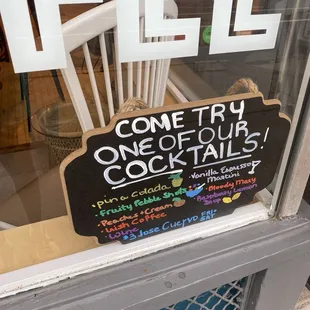 COME TRY
ONE OF OUR
COCKTAILS!
• Vanilla Espresso Martini
• pina Colada
• Fruity Pebble Shots
• Bloody Mary
• Peaches + Cream
• Raspberry Lemon Drop
• Irish Coffee
• Wine
$3 Jose Cuervo FRI, SAT